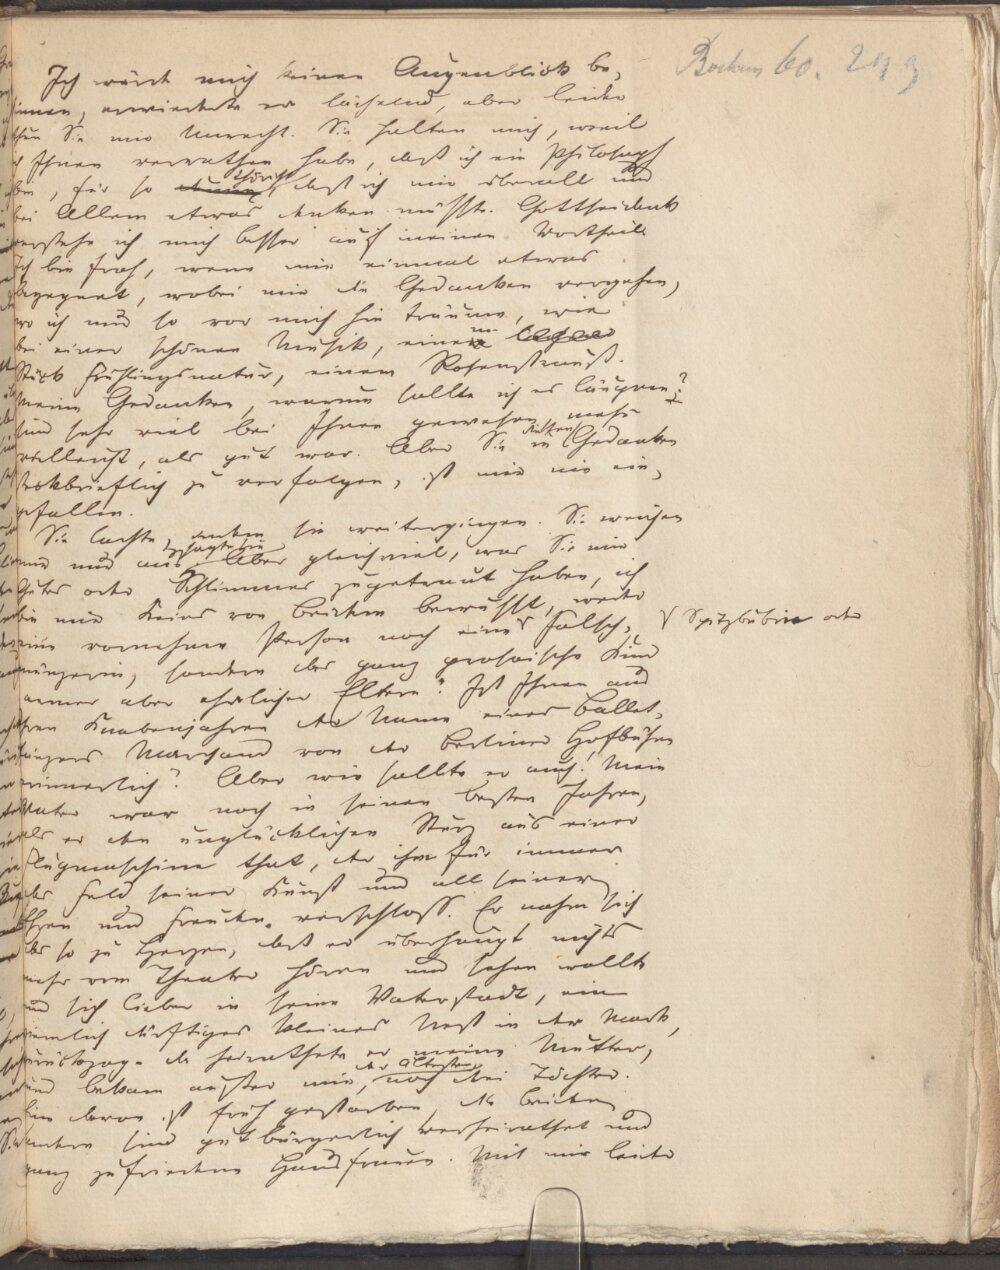 Ich würde mich keinen Augenblick be-
sinnen, erwiederte er lächelnd, aber leider
thun Sie mir Unrecht. Sie halten mich, weil
ich Ihnen verrathen habe, daß ich ein Philosoph
bin, für so thöricht, daß ich mir überall und
bei Allem etwas denken müßte. Gottseidank
verstehe ich mich besser auf meinen Vortheil.
Ich bin froh, wenn mir einmal etwas
begegnet, wobei mir die Gedanken vergehen,
wo ich nur so vor mich hin träume, wie
bei einer schönen Musik, einem
Stück Frühlingsnatur, einem Rosenstrauß.
Meine Gedanken, warum sollte ich es läugnen?
sind sehr viel bei Ihnen gewesen, mehr
vielleicht, als gut war. Aber Sie in Gedanken
steckbrieflich zu verfolgen, ist mir nie ein-
gefallen.
Sie lachte, indem sie weitergingen. Sie weichen
mir nur aus, sagte sie. Aber gleichviel, was Sie mir
Gutes oder Schlimmes zugetraut haben, ich
bin mir Keines von Beidem bewußt, weder
eine vornehme Person noch eine √ Falsch-
√ Spitzbübin oder
münzerin, sondern das ganz prosaische Kind
armer aber ehrlicher Eltern. Ist Ihnen aus
Ihren Knabenjahren der Name eines Ballet-
tänzers Marchand von der Berliner Hofbühne
erinnerlich? Aber wie sollte er auch! Mein
Vater war noch in seinen besten Jahren,
als er den unglücklichen Sturz aus einer
Flugmaschine that, der ihm für immer
das Feld seiner Kunst und all seiner
Ehren und Freuden verschloß. Er nahm sich
das so zu Herzen, daß er überhaupt nichts
mehr vom Theater hören und sehen wollte
und sich lieber in seine Vaterstadt, ein
ziemlich dürftiges kleines Nest in der Mark,
zurückzog. Da heirathete er meine Mutter,
und bekam außer mir, der Ältesten, noch drei Töchter.
Eine davon ist früh gestorben, die beiden
andern sind gut bürgerlich verheirathet und
ganz zufriedene Hausfrauen. Mit mir leider
60.